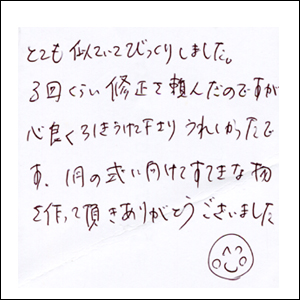 とても似ていてびっくりしました。
3回くらい修正を頼んだのですが
心良く引きうけて下さり うれしかったで
す。1月の式に向けてすてきな物
を作って頂きありがとうございました